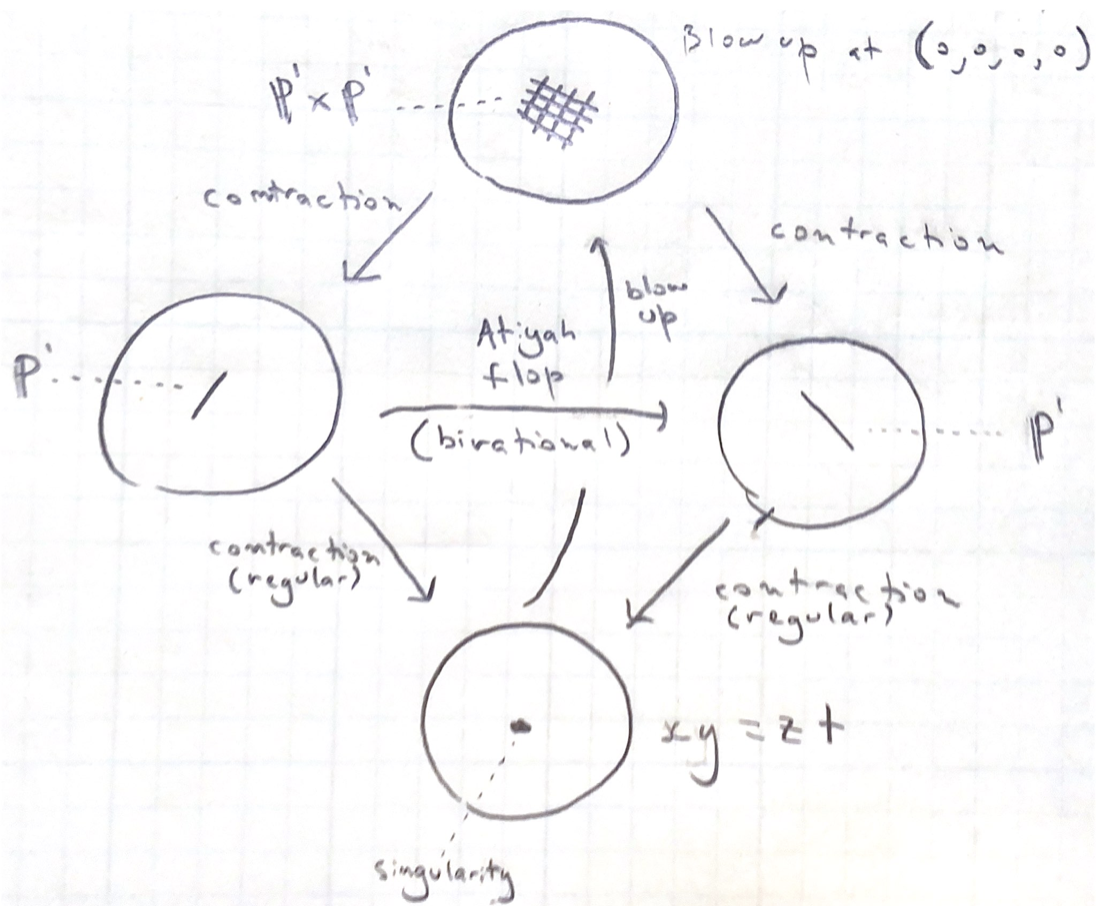 Blow up at (0,0,0,0)
ℙ¹ × ℙ¹
contraction
contraction
blow
up
Atiyah
flop
(birational)
ℙ¹
ℙ¹
contraction
(regular)
contraction
(regular)
xy = zt
singularity